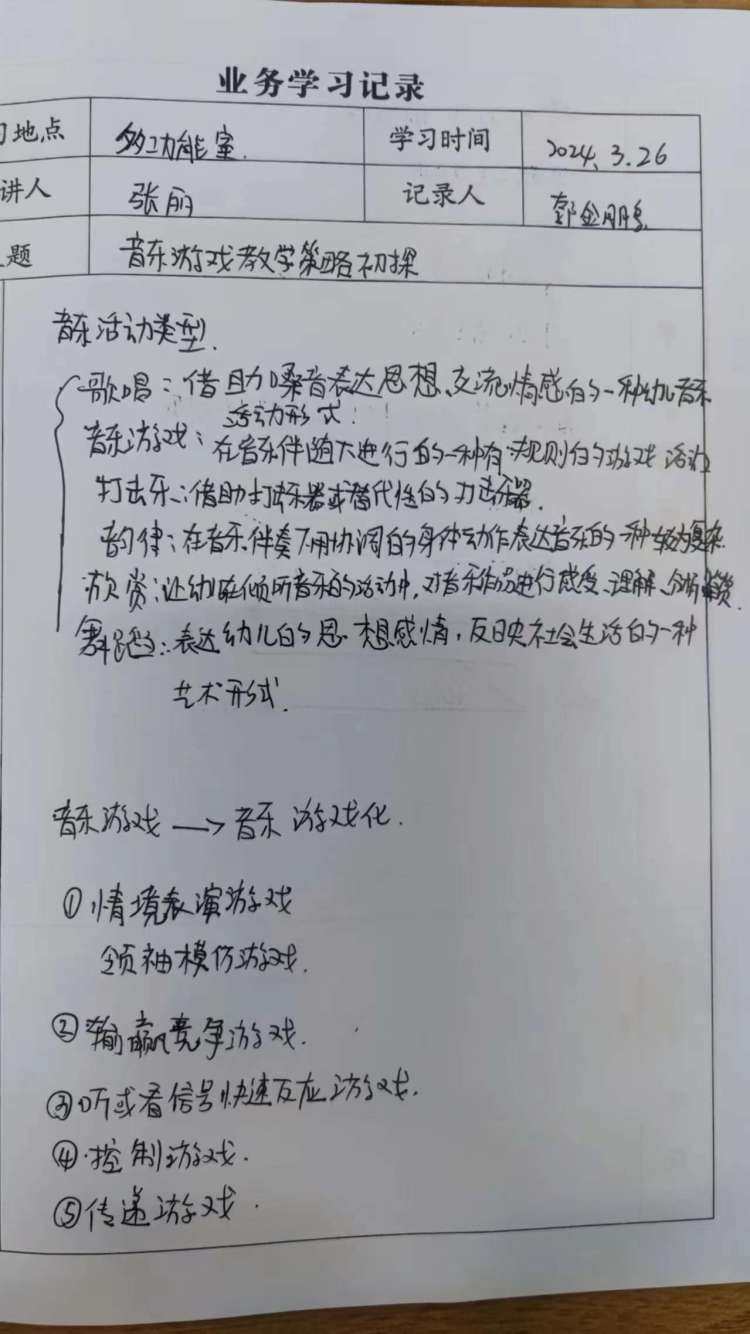 业务学习记录
习地点 多功能室. 学习时间 2024.3.26
讲人 张丽 记录人 郭金鹏
题 音乐游戏教学策略初探
音乐活动类型.
歌唱：借助嗓音表达思想、交流情感的一种幼儿音乐
活动形式！
音乐游戏：在音乐伴随下进行的一种有规则的游戏活动
打击乐：借助打击乐器或替代性的打击乐器.
韵律：在音乐伴奏下用协调的身体动作表达音乐的一种较为复杂
欣赏：让幼儿在倾听音乐的活动中，对音乐作品进行感受、理解、
舞蹈：表达幼儿的思想感情，反映社会生活的一种
艺术形式.
音乐游戏 → 音乐游戏化.
①情境表演游戏
领袖模仿游戏.
②输赢竞争游戏.
③听或看信号快速反应游戏.
④控制游戏.
⑤传递游戏.